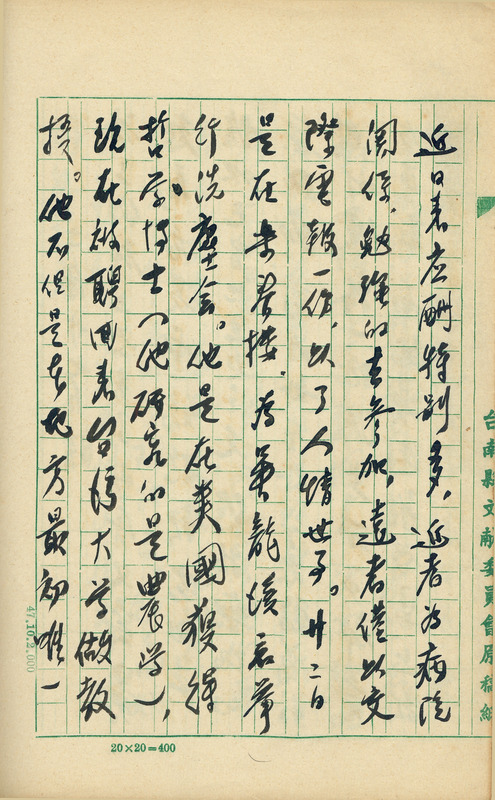 台南縣文献委員會原稿紙
近日来应酬特别多，近者为病院
関係，勉強的去参加，遠者僅以交
際電報一份，以了人情世事。廿二日
是在来春楼，為吴龍君举
行洗塵会。他是在美國獲得
哲学博士（他研究的是農学），
现在被聘回来台湾大学做教
授。他不但是本地方最初唯一
47.10.2.000
20×20=400